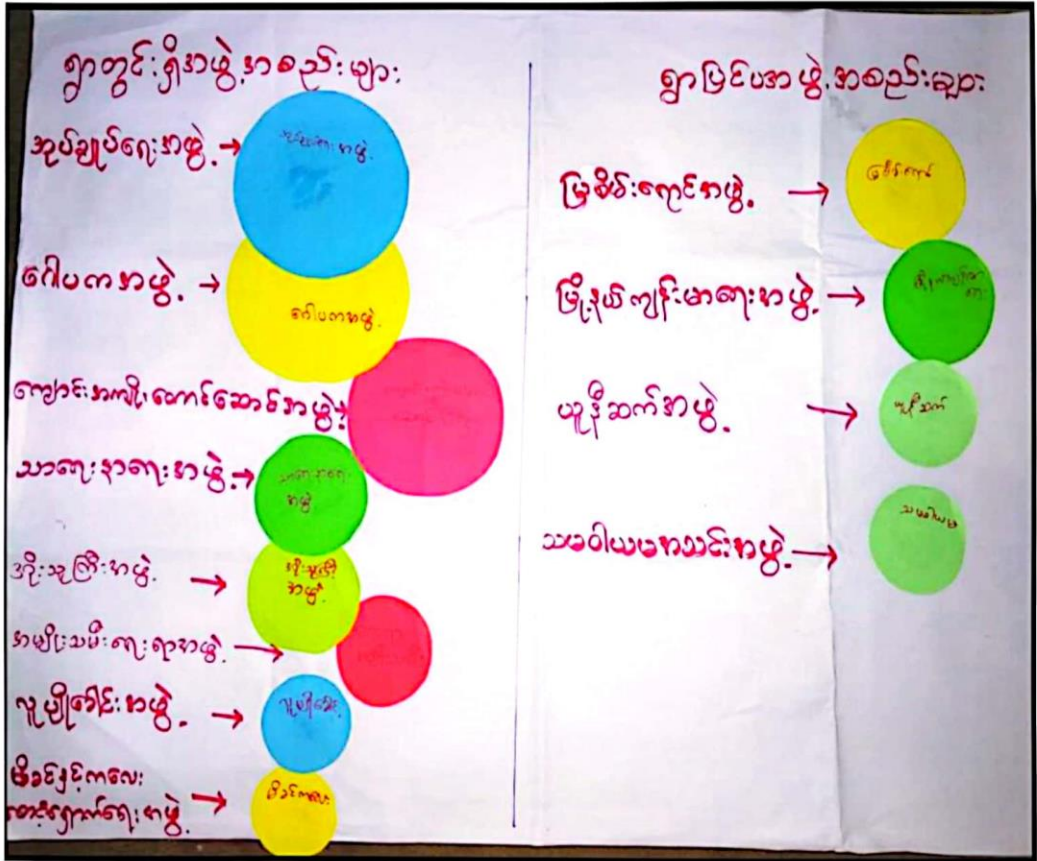 ရွာတွင်းရှိအဖွဲ့အစည်းများ
အုပ်ချုပ်ရေးအဖွဲ့
အုပ်ချုပ်ရေးအဖွဲ့
ဂေါပကအဖွဲ့
ဂေါပကအဖွဲ့
ကျောင်းအကျိုးတောင်ဆောင်အဖွဲ့
သာရေးနာရေးအဖွဲ့
သာရေးနာရေး
အဖွဲ့
အိုးသူကြီးအဖွဲ့
အိုးသူကြီး
အဖွဲ့
အမျိုးသမီးရေးရာအဖွဲ့
လူပျိုခေါင်းအဖွဲ့
လူပျိုခေါင်း
မိခင်နှင့်ကလေး
စောင့်ရှောက်ရေးအဖွဲ့
မိခင်ကလေး
ရွာပြင်ပအဖွဲ့အစည်းများ
မြစိမ်းရောင်အဖွဲ့
မြစိမ်းရောင်
မြို့နယ်ကျန်းမာရေးအဖွဲ့
မြို့နယ်ကျန်းမာ
ရေး
ယူနီဆက်အဖွဲ့
ယူနီဆက်
သမဝါယမအသင်းအဖွဲ့
သမဝါယမ